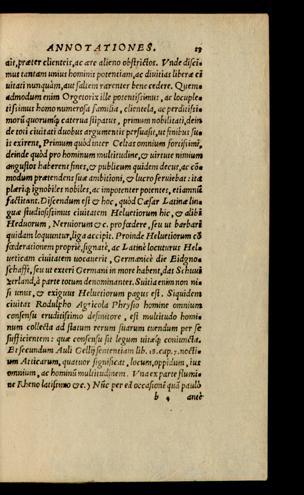 ANNOTATIONES. 19
ait, præter clienteis, ac ære alieno obstrictos. Vnde disci-
mus tantam unius hominis potentiam, ac diuitias liberæ ci
uitati nunquàm, aut saltem raræenter bene cedere. Quem-
admodum enim Orgetorix ille potentissimus, ac locuple-
tissimus homo numerosa familia, clientela, ac perditissi-
morũ quorumq́; caterua stipatus, primum nobilitati, dein
de toti ciuitati duobus argumentis persuasit, ut finibus su-
is exirent, Primum quòd inter Celtas omnium fortissimi,
deinde quòd pro hominum multitudine, & uirtute nimium
angustos haberent fines, & publicum quidem decus, ac cõ-
modum prætendens sua ambitioni, & lucro seruiebat: ita
pleriq́; ignobiles nobiles, ac impotentes potentes, etiamnũ
factitant. Discendum est & hoc, quòd Cæsar Latinæ lin-
guæ studiosissimus ciuitatem Heluetiorum hic, & alibi
Heduorum, Neruiorum &c. pro fœdere, seu ut barbari
quidam loquuntur, liga accipit. Proinde Heluetiorum cõ
fœderationem propriè, signatè, ac Latinè locuturus Hel-
ueticam ciuitatem uocauerit, Germanicè die Eidgnos-
schafft, seu ut exteri Germani in more habent, das Schuui
tzerland, à parte totum denominantes. Suitia enim non ni
si unus, & exiguus Heluetiorum pagus est. Siquidem
ciuitas Rodulpho Agricola Phrysio homine omnium
consensu eruditissimo definitore, est multitudo homi-
num collecta ad statum rerum suarum tuendum per se
sufficientem: quæ consensu sit legum utiq́; coniuncta.
Et secundum Auli Gellij sententiam lib. 18. cap. 7. nocti-
um Atticarum, quatuor significat, locum, oppidum, ius
omnium, ac hominũ multitudinem. Vna ex parte flumi-
ne Rheno latissimo &c.) Nũc per eã occasionẽ quã paulò
b 4 antè